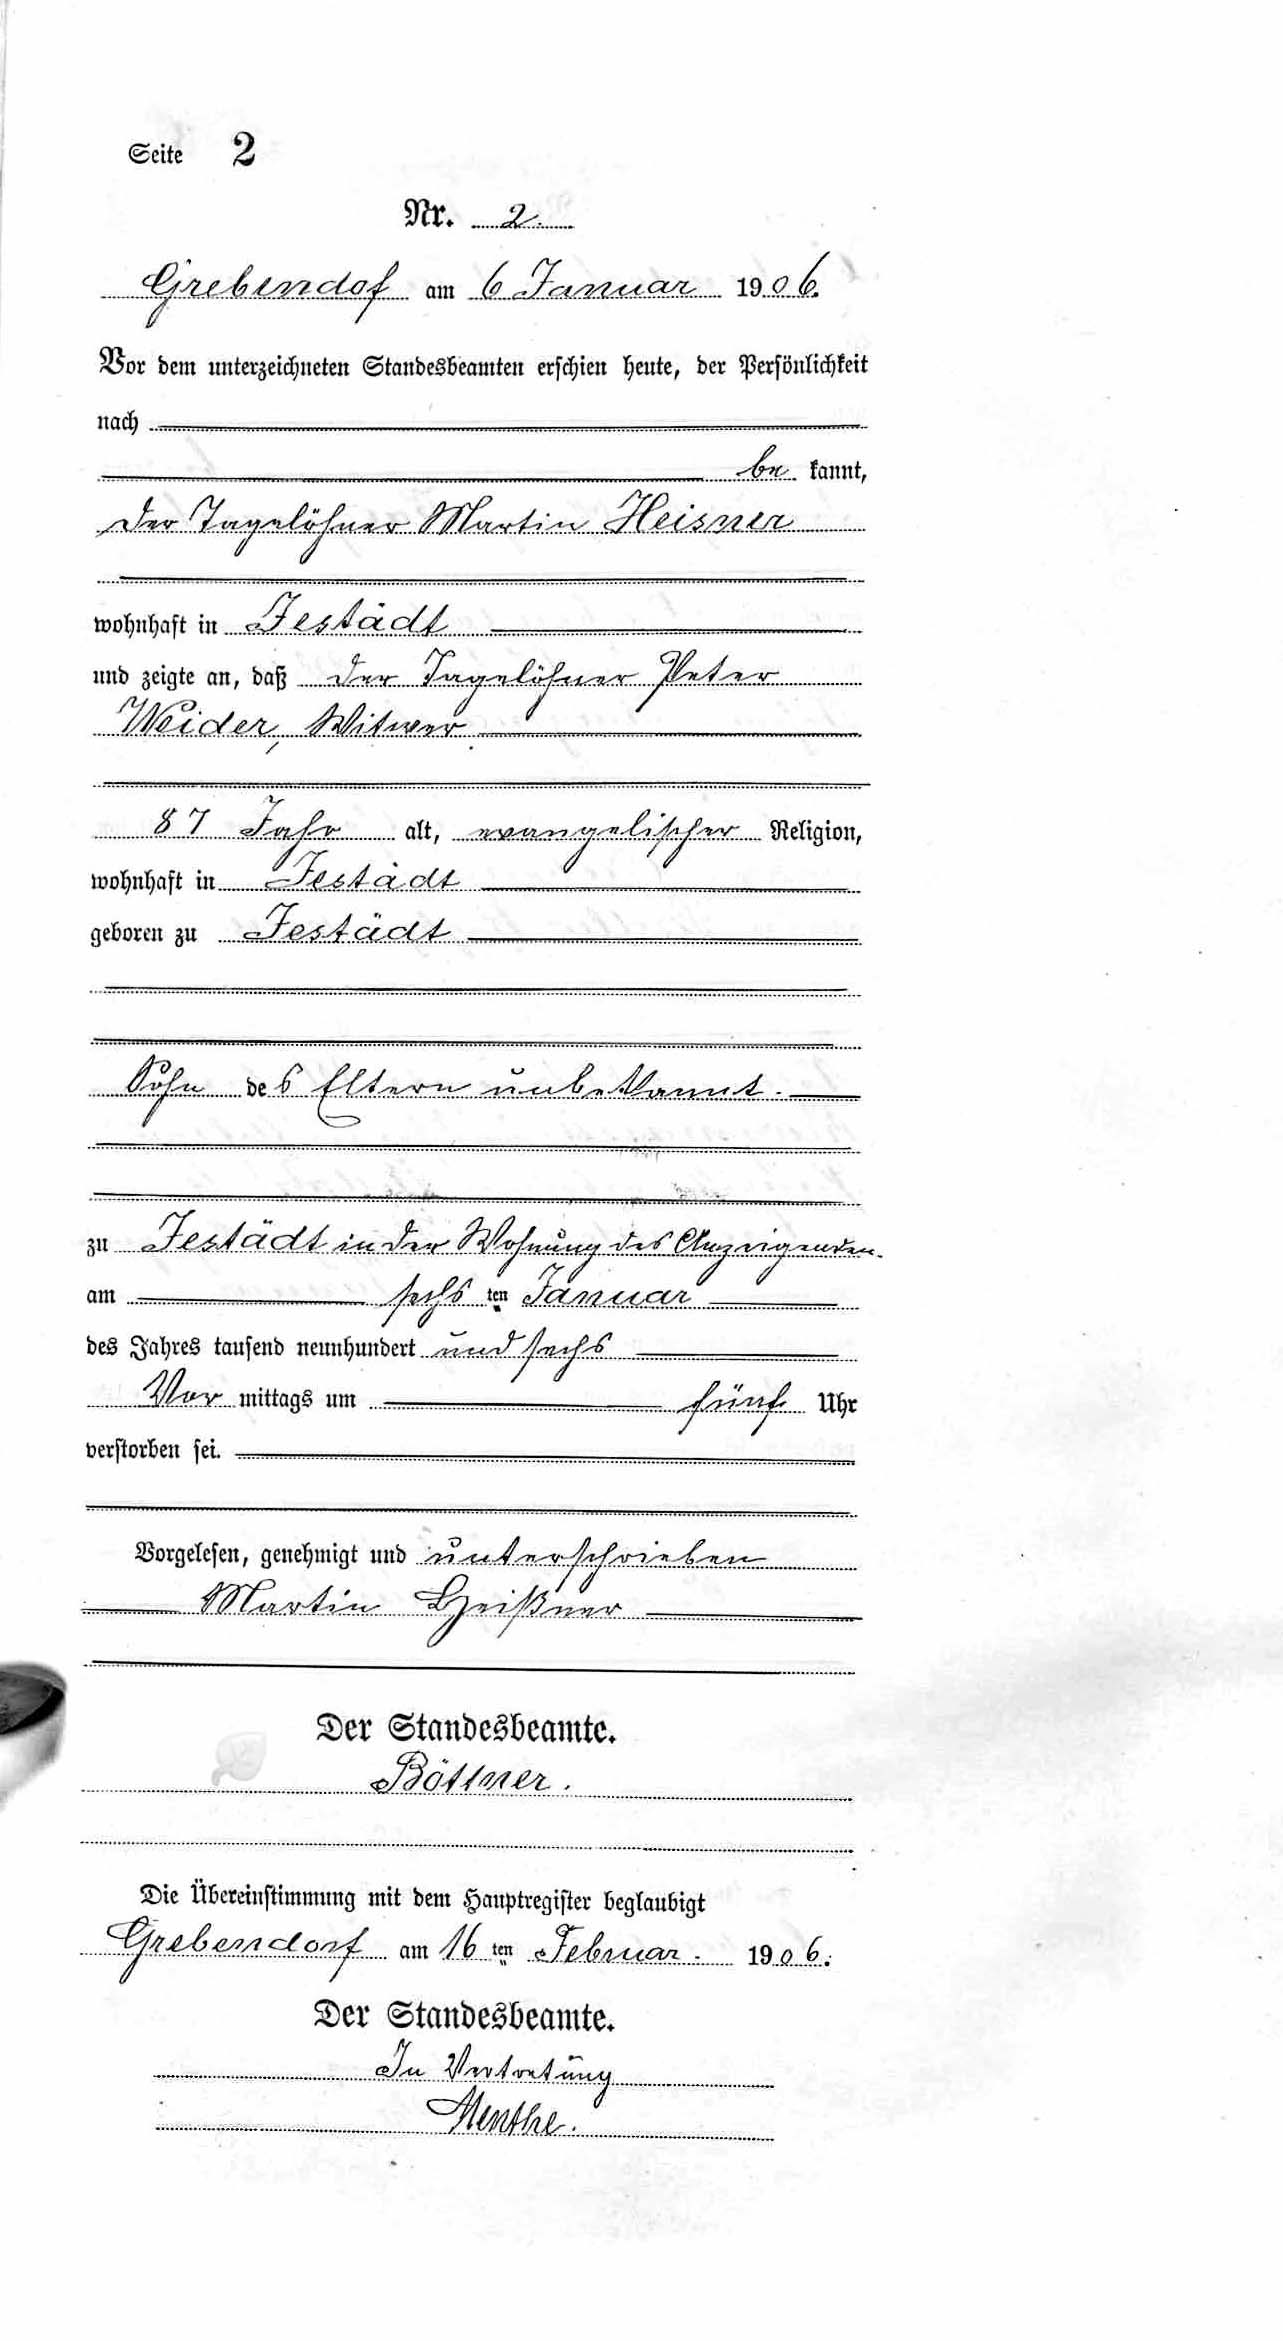 Seite 2
Nr. 2.
Grebendof am 6 Januar 1906.
Vor dem unterzeichneten Standesbeamten erschien heute, der Persönlichkeit
nach
be kannt,
der Tagelöhner Martin Heisner
wohnhaft in Jestädt
und zeigte an, daß der Tagelöhner Peter
Weider, Witwer
87 Jahr alt, evangelischer Religion,
wohnhaft in Jestädt
geboren zu Jestädt
Sohn des Eltern unbekannt.
zu Jestädt in der Wohnung des Anzeigenden.
am sechs ten Januar
des Jahres tausend neunhundert und sechs
Vor mittags um fünf Uhr
verstorben sei.
Vorgelesen, genehmigt und unterschrieben
Martin Heißner
Der Standesbeamte.
Böttner.
Die Übereinstimmung mit dem Hauptregister beglaubigt
Grebendorf am 16 ten Februar. 1906.
Der Standesbeamte.
In Vertretung
Menthe.